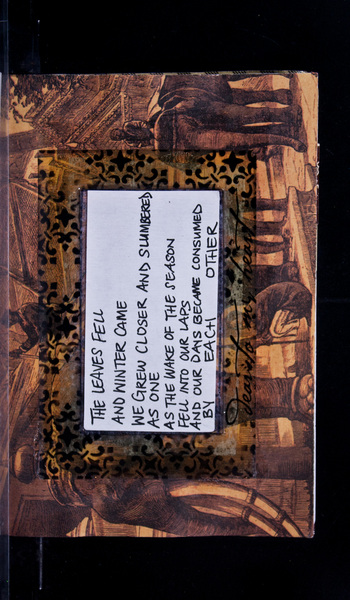 THE LEAVES FELL
AND WINTER CAME
WE GREW CLOSER AND SLUMBERED
AS ONE
AS THE WAKE OF THE SEASON
FELL INTO OUR LAPS
AND OUR DAYS BECAME CONSUMED
BY EACH OTHER
Dear to my heart